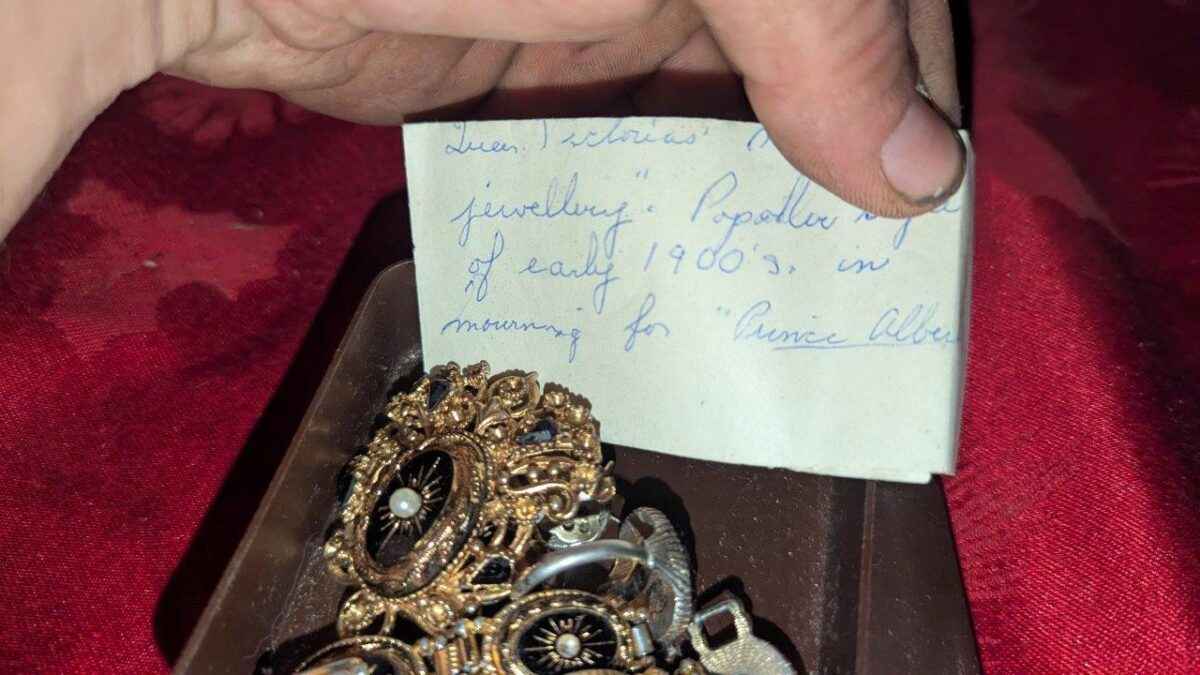 Queen Victorias'
jewellery". Popouller style
of early 1900's. in
mourning for "Prince Alber